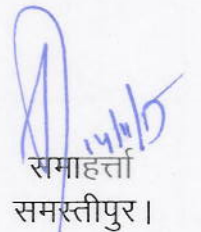 14/11/15
समाहर्त्ता
समस्तीपुर।